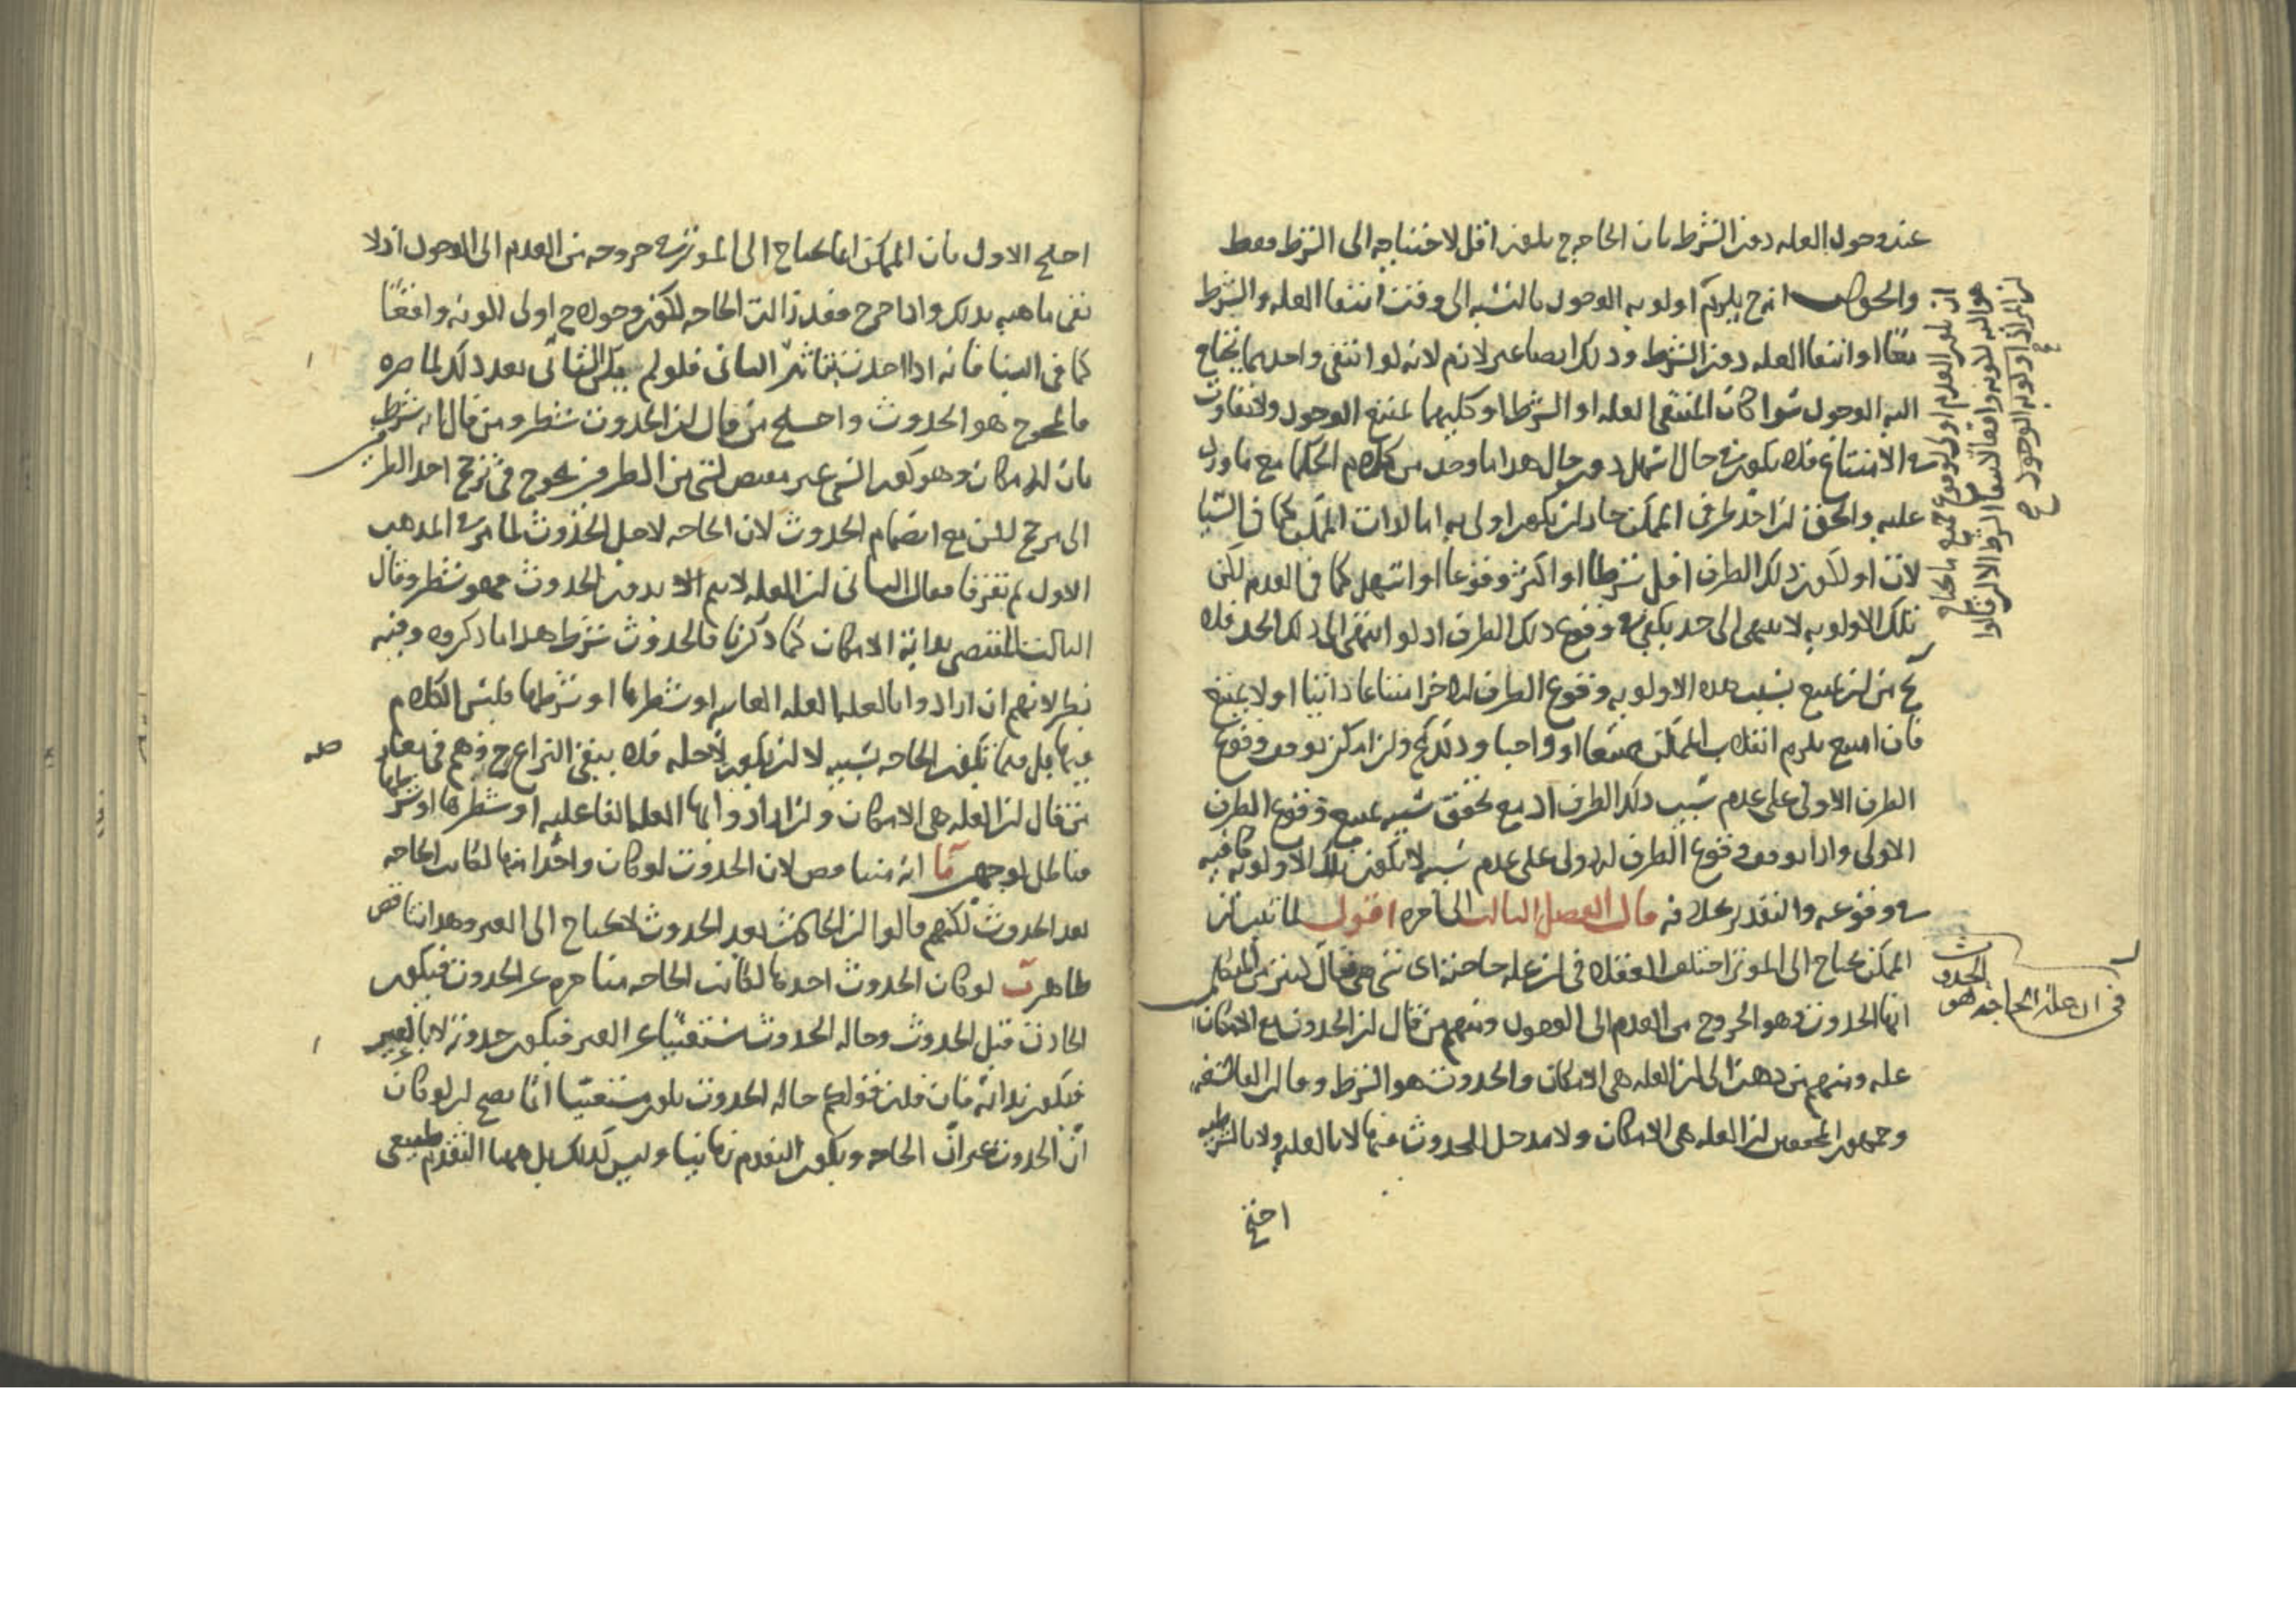 عند وجود العله دون الشرط فان الحاجة ح يكون اقل لاحتياجه الى الشرط فقط
والجواب انه ح يلزم اولويه الوجود بالنسبه الى وقت انتفا العله والشرط
معا او انتفا العله دون الشرط وذلك ايضا غير لازم لانه لو انتفى واحد مما يحتاج
اليه الوجود سوا كان المنتفى العله او الشرط او كليهما لمتنع الوجود ولا تفاوت
فى الامتناع فلا يكون فى حال اسهل دون حال هذا ما وجد من كلام الحكما مع ما ورد
عليه والحق ان احد طرفى الممكن جاز ان يكون اولى به اما لذات الممكن كما فى
لان او لكون ذلك الطرف اقل شرطا او اكثر وقوعا او اسهل كما فى العدم لكن
تلك الاولويه لا تنتهى الى حد يكفى فى وقوع ذلك الطرف اذ لو انتهى الى ذلك الحد فلا
يخ من ان يمتنع بسبب هذه الاولويه وقوع الطرف الاخر امتناعا ذاتيا او لا يمتنع
فان امتنع يلزم انقلاب الممكن ممتنعا او واجبا وان امكن توقف وقوع
الطرف الاولى على عدم سبب ذلك الطرف اذ مع تحقق سببه يمتنع وقوع الطرف
الاولى واذا توقف وقوع الطرف الاولى على عدم سبب لا تكون تلك الاولويه كافيه
فى وقوعه والتقدير بخلافه قال الفصل الثالث الى اخره اقول لما تبين ان
الممكن يحتاج الى الموثر اختلف العقلا فى ان عله حاجته اى شى هى فقال كثير من المتكلمين
انها الحدوث وهو الخروج من العدم الى الوجود ومنهم من قال ان الحدوث مع الامكان
عله ومنهم من ذهب الى ان العله هى الامكان والحدوث هو الشرط وقال الفلاسفه
وجمهور المحققين ان العله هى الامكان ولا مدخل للحدوث فيها لا بالعليه ولا بالشرطيه
احتج
ان يكون العدم اولى لوقوع جميع ما يحتاج
هو اليه لكونه واقعا لانتفا الشرط الا ان قالوا
ان المراد اولويه الوجود ح
الحدوث
فى ان عله الحاجة هو
احتج الاول بان الممكن انما يحتاج الى الموثر فى خروجه من العدم الى الوجود اذ لا
نعنى ماهيه بذلك واذا خرج فقد زالت الحاجه لكون وجوده ح اولى لكونه واقعا
كما فى البنا فانه اذا احدث بتاثير البانى فلو لم يبق البانى بعد ذلك لما ضره
فالمحوج هو الحدوث واحتج من قال ان الحدوث شطر ومن قال انه شرط
بان الامكان وهو كون الشى غير مقتض لشى من الطرفين يحوج فى ترجح احد الطرفين
الى مرجح لكن مع انضمام الحدوث لان الحاجه لاجل الحدوث لما مر فى المذهب
الاول ثم تفرقا فقال الثانى ان العله لا يتم الا بدون الحدوث فهو شطر وقال
الثالث المقتضى بذاته الامكان كما ذكرنا فالحدوث شرط هذا ما ذكروه وفيه
نظر لانهم ان ارادوا بالعله العله الغاييه او شطرها او شرطها فليس الكلام
فيها بل فيما تكون الحاجه بسببه لا ان يكون لاجله فلا يبقى النزاع ح وهم فى مقابله
من قال ان العله هى الامكان وان ارادوا بها العله الفاعليه او شطرها او شرطها
فباطل لوجهين آ انه متناقض لان الحدوث لو كان واحدا منها لكانت الحاجه
بعد الحدوث لكنهم قالوا ان الحادث بعد الحدوث لا يحتاج الى الغير وهذا تناقض
ظاهر ب لو كان الحدوث احدها لكانت الحاجه متاخره عن الحدوث فيكون
الحادث قبل الحدوث وحاله الحدوث مستغنيا عن الغير فيكون حدوثه لا بالغير
فيكون بذاته فان قلت قولكم حاله الحدوث يكون مستغنيا انما يصح ان لو كان
ان الحدوث غير ان الحاجه ويكون التقدم زمانيا وليس كذلك بل ههنا التقدم طبيعى